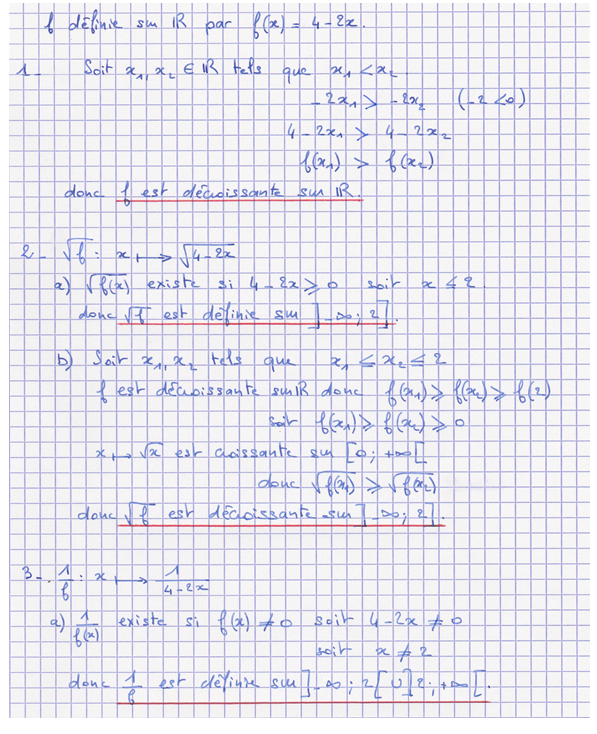 f définie sur ℝ par f(x) = 4-2x.
1- Soit x₁, x₂ ∈ ℝ tels que x₁ < x₂
-2x₁ > -2x₂ (-2 < 0)
4-2x₁ > 4-2x₂
f(x₁) > f(x₂)
donc f est décroissante sur ℝ.
2- √f : x ⟼ √(4-2x)
a) √f(x) existe si 4-2x ⩾ 0 soit x ⩽ 2.
donc √f est définie sur ]-∞; 2].
b) Soit x₁, x₂ tels que x₁ ⩽ x₂ ⩽ 2
f est décroissante sur ℝ donc f(x₁) ⩾ f(x₂) ⩾ f(2)
soit f(x₁) ⩾ f(x₂) ⩾ 0
x ⟼ √x est croissante sur [0; +∞[
donc √f(x₁) ⩾ √f(x₂)
donc √f est décroissante sur ]-∞; 2].
3-. 1/f : x ⟼ 1/(4-2x)
a) 1/f(x) existe si f(x) ≠ 0 soit 4-2x ≠ 0
soit x ≠ 2
donc 1/f est définie sur ]-∞; 2[ U ]2; +∞[.